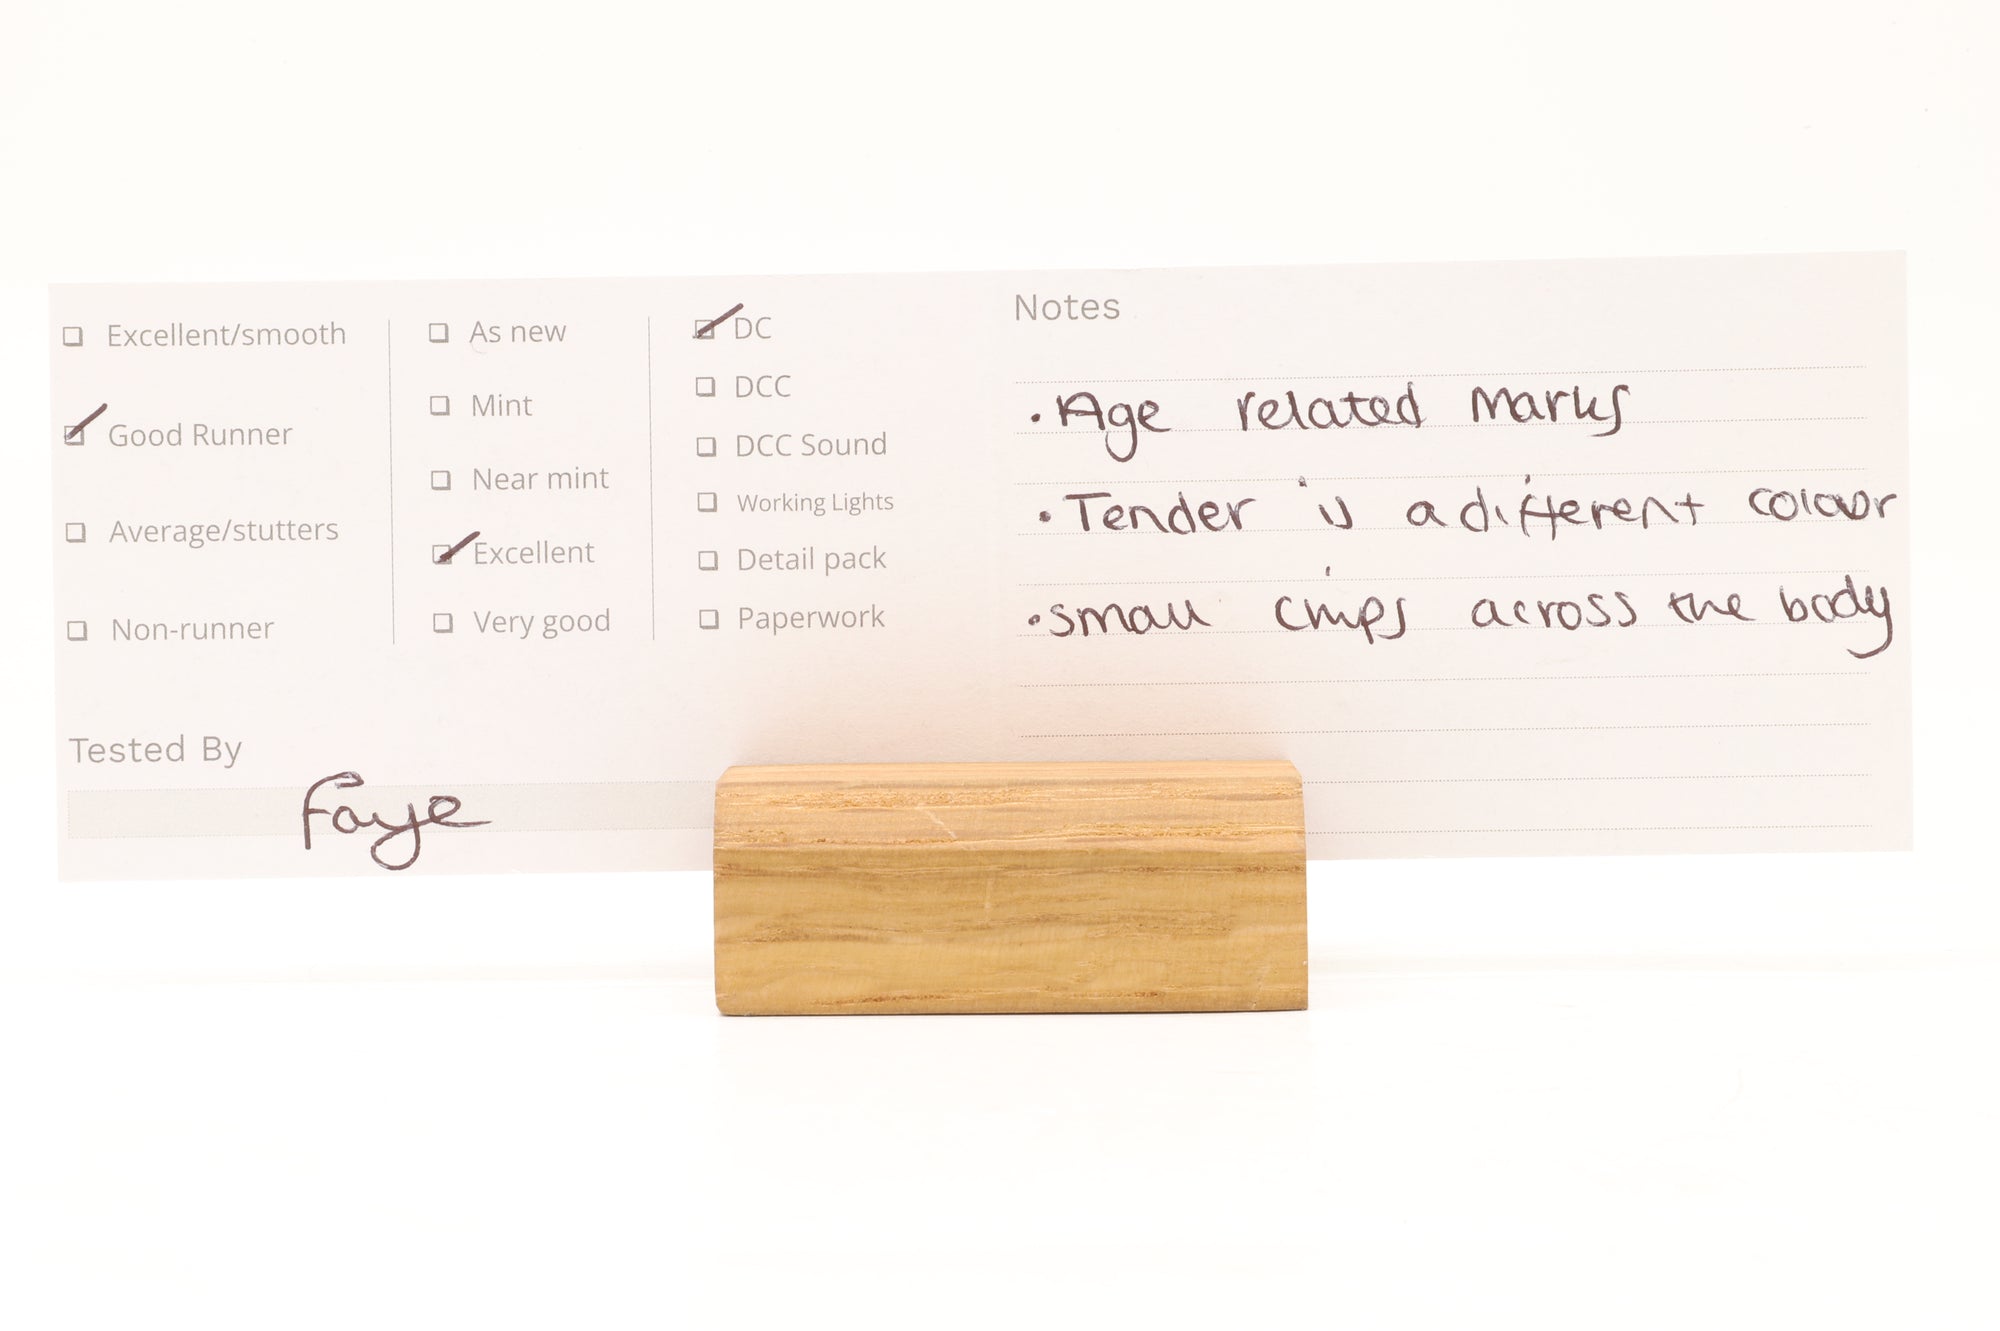 Excellent/smooth
Good Runner
Average/stutters
Non-runner
As new
Mint
Near mint
Excellent
Very good
DC
DCC
DCC Sound
Working Lights
Detail pack
Paperwork
Tested By
Faye
Notes
• Age related Marks
• Tender is a different colour
• small chips across the body